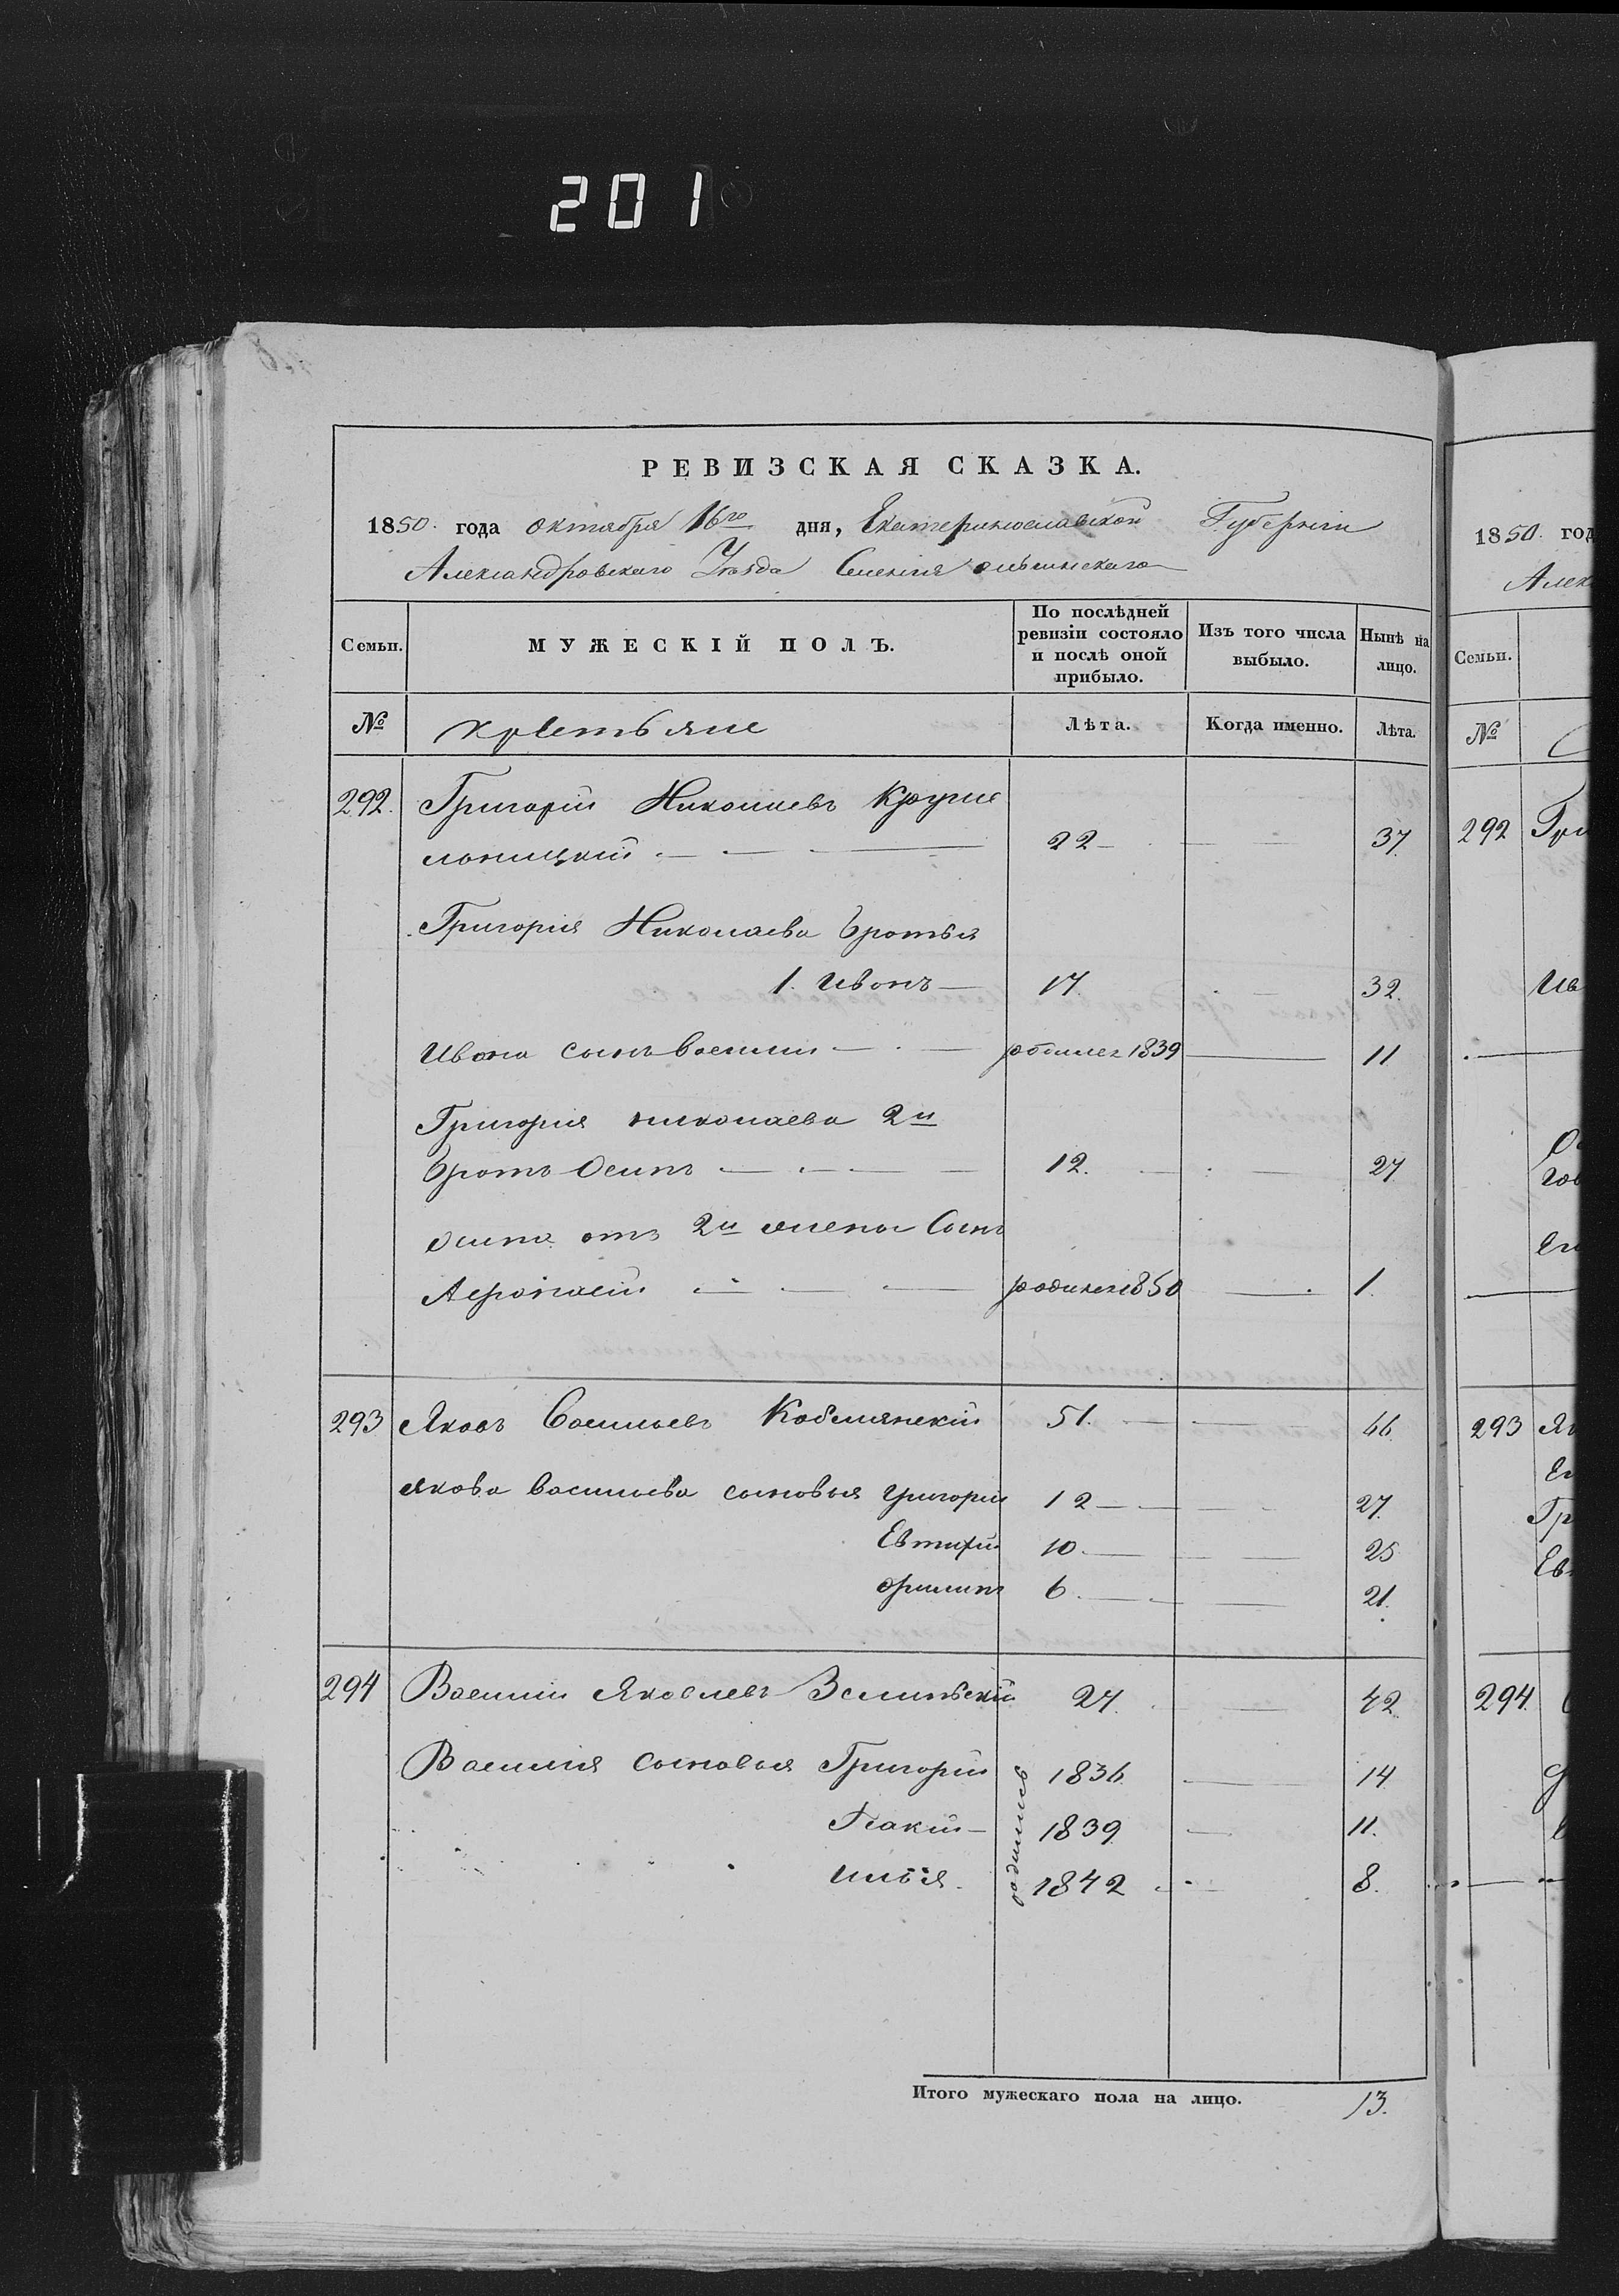 201
РЕВИЗСКАЯ СКАЗКА.
1850. года октября 16го дня, Екатеринославской Губернiи
Александровскаго Уѣзда Селенiя
Семьи. МУЖЕСКІЙ ПОЛЪ. По послѣдней ревизіи состояло и послѣ оной прибыло. Изъ того числа выбыло. Нынѣ на лицо.
№ крестьяне Лѣта. Когда именно. Лѣта.
292. Григорiй Николаевъ
22 37.
Григорiя Николаева братья
1. Иванъ 17. 32.
Ивана сынъ василiй родился 1839 11
Григорiя николаева 2й
братъ Осипъ 12. 27
осипа отъ 2й жены Сынъ
родился 1850 1.
293 Яковъ Васильевъ Кобелянскiй 51. 66
якова васильева сыновья григорiй 12 27.
Евтихiй 10 25
филипъ 6. 21.
294 Василiй Яковлевъ Зелинскiй 27. 42
Василiя сыновья Григорiй родились 1836 14
Исакiй 1839 11.
илья. 1842 8.
Итого мужескаго пола на лицо. 13.
1850. год
Алек
Семьи.
№
292 Гри
Ив
293 Як
Гр
Ев
294.